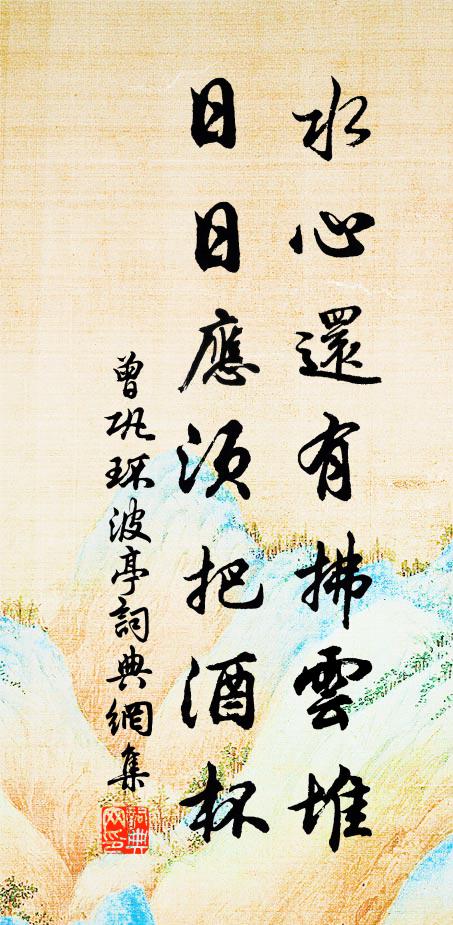 水心還有拂雲堆
日日應須把酒杯
曾巩環波亭詞典網集
詞典网印